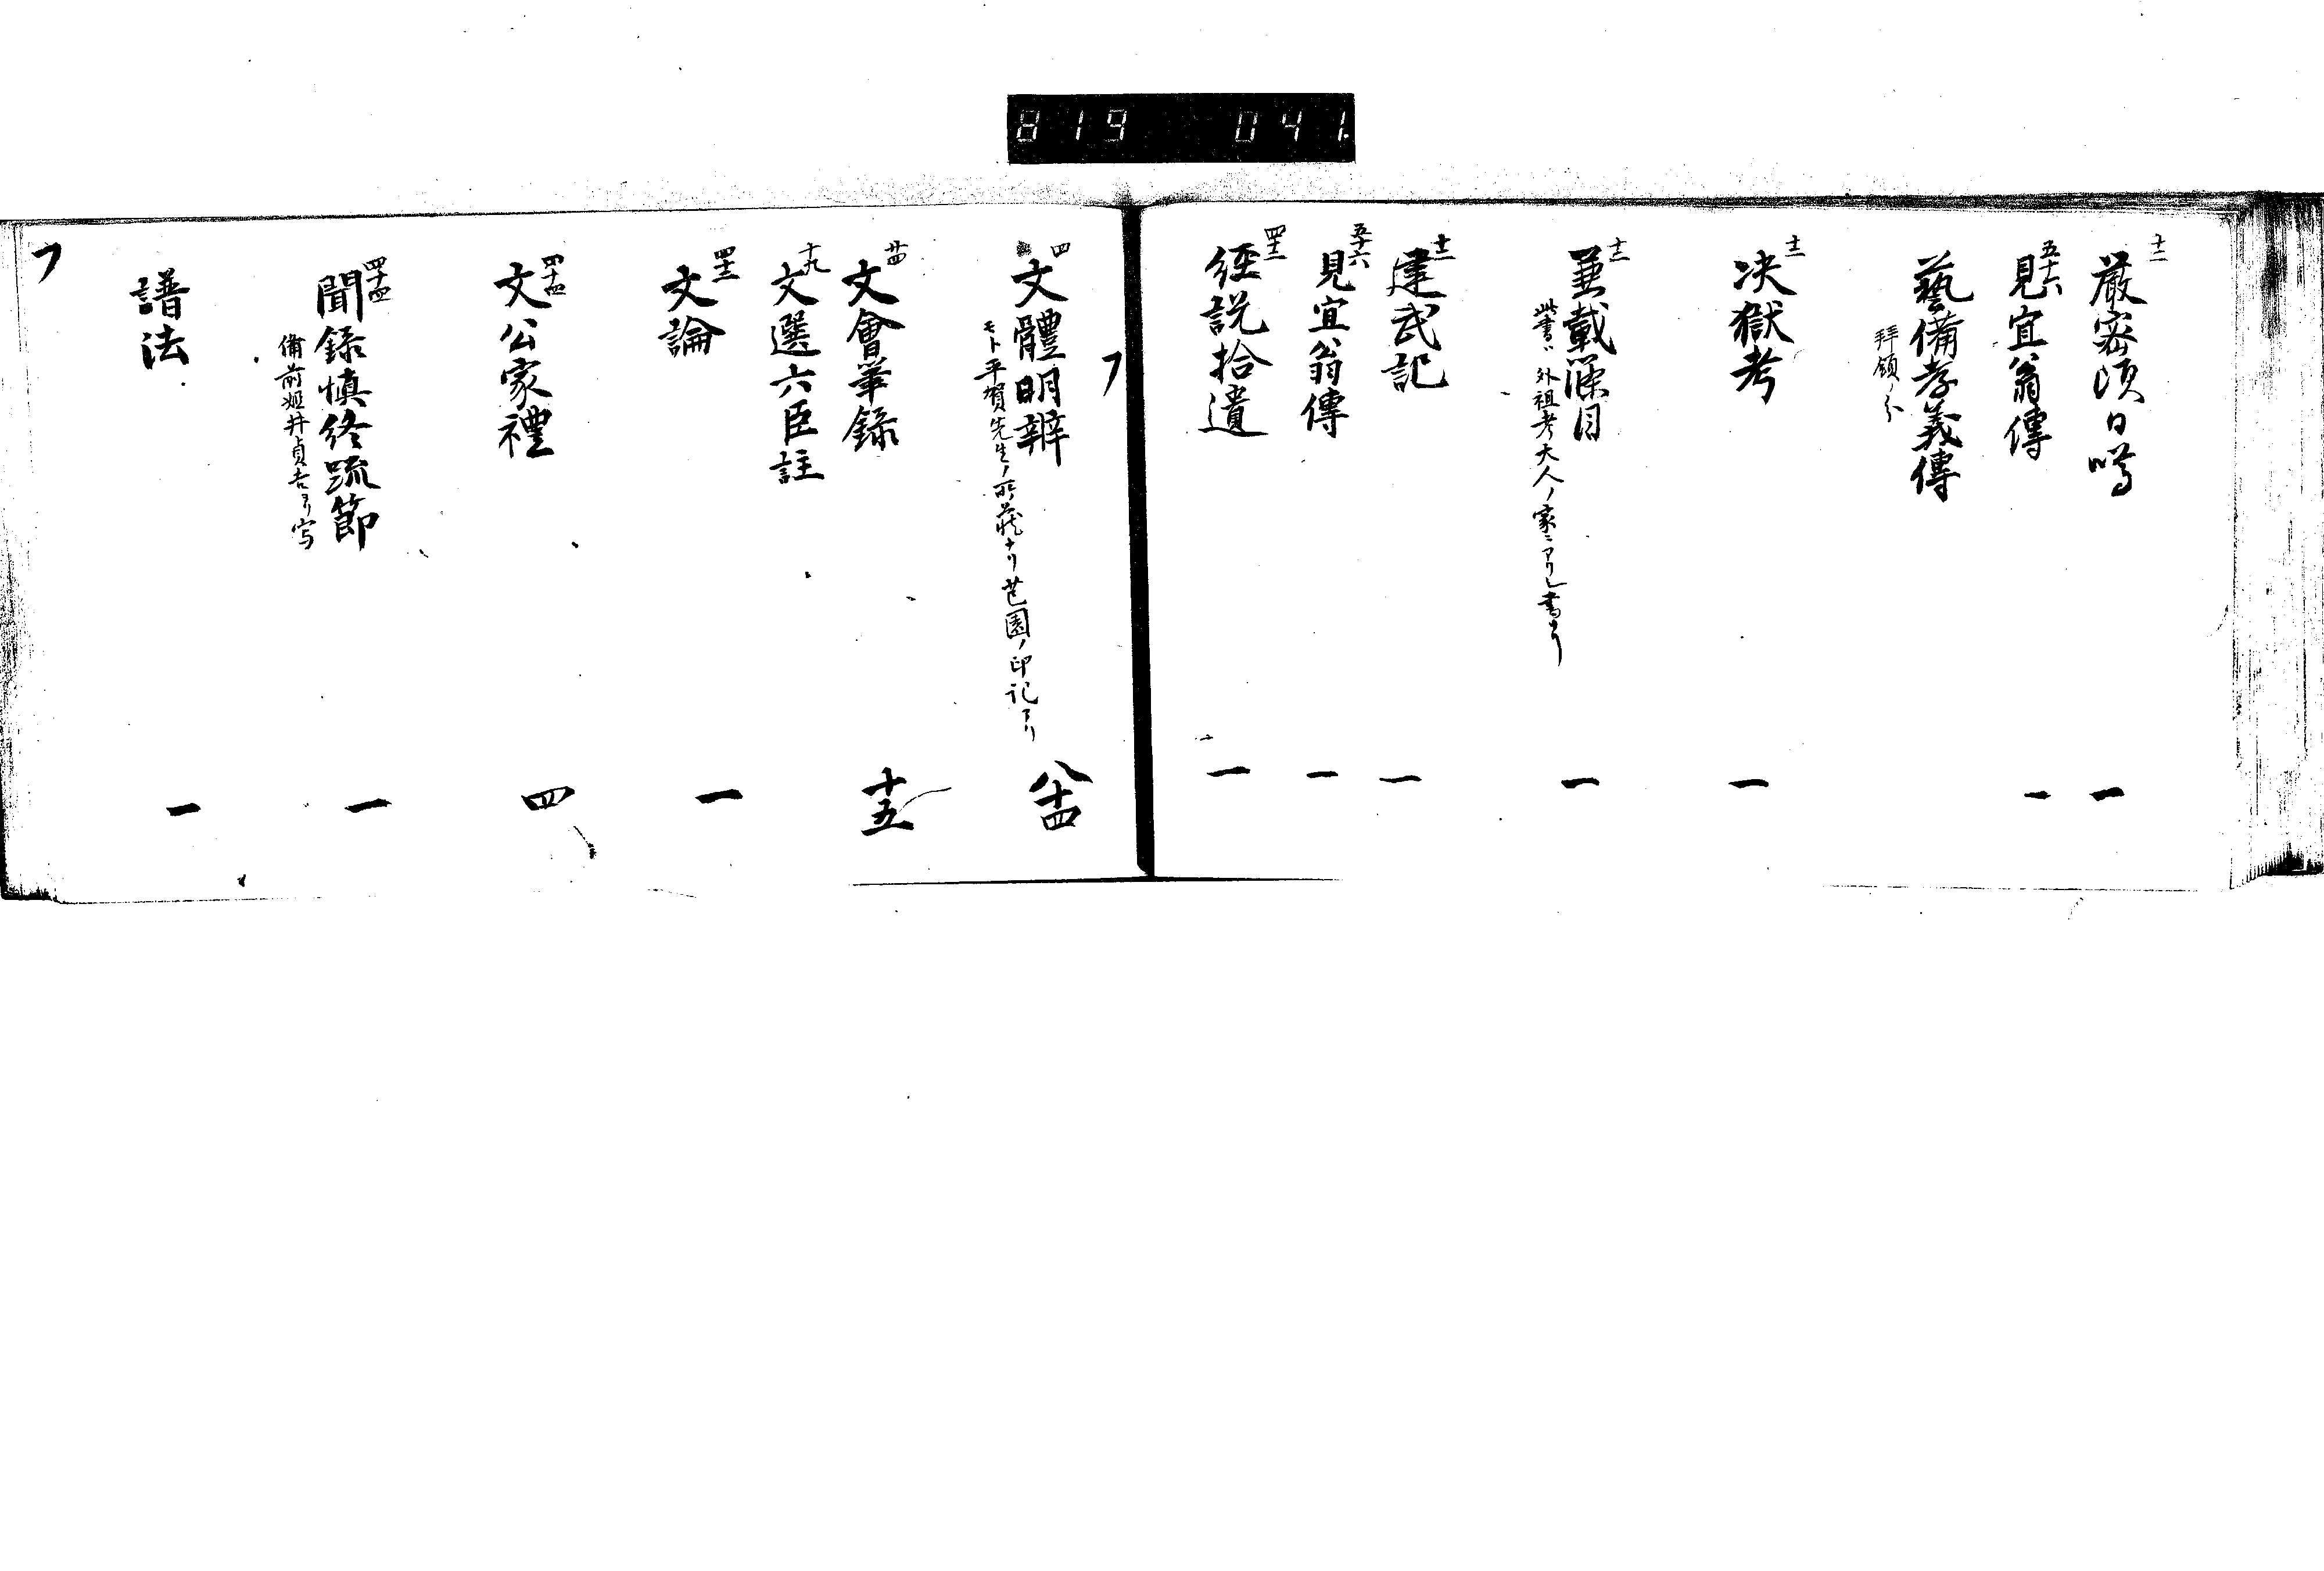 819 041
十二
嚴密須日噂 一
五十六
見宜翁傳 一
藝備孝義傳
拝領ノ分
十二
决獄考 一
十二
兼載深目 一
此書ハ外祖考大人ノ家ニアリし書ナリ
十二
建武記 一
五十六
見宜翁傳 一
四十二
経説拾遺 一
フ
四
文體明辨 八十四
モト平賀先生ノ所蔵ナリ芑園ノ印記アリ
廿四
文會筆録 十五
十九
文選六臣註
四十二
文論 一
四十四
文公家禮 四
四十四
聞録慎終疏節 一
備前姫井貞吉ヨリ写
譜法 一
フ